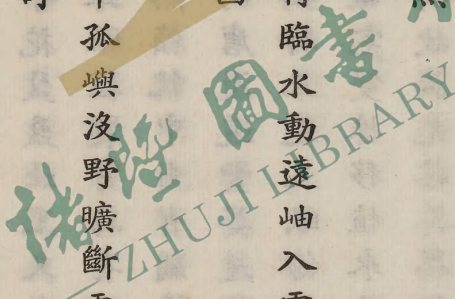 臨水動遠岫入
孤嶼没野曠斷
諸暨圖書
ZHUJI LIBRARY